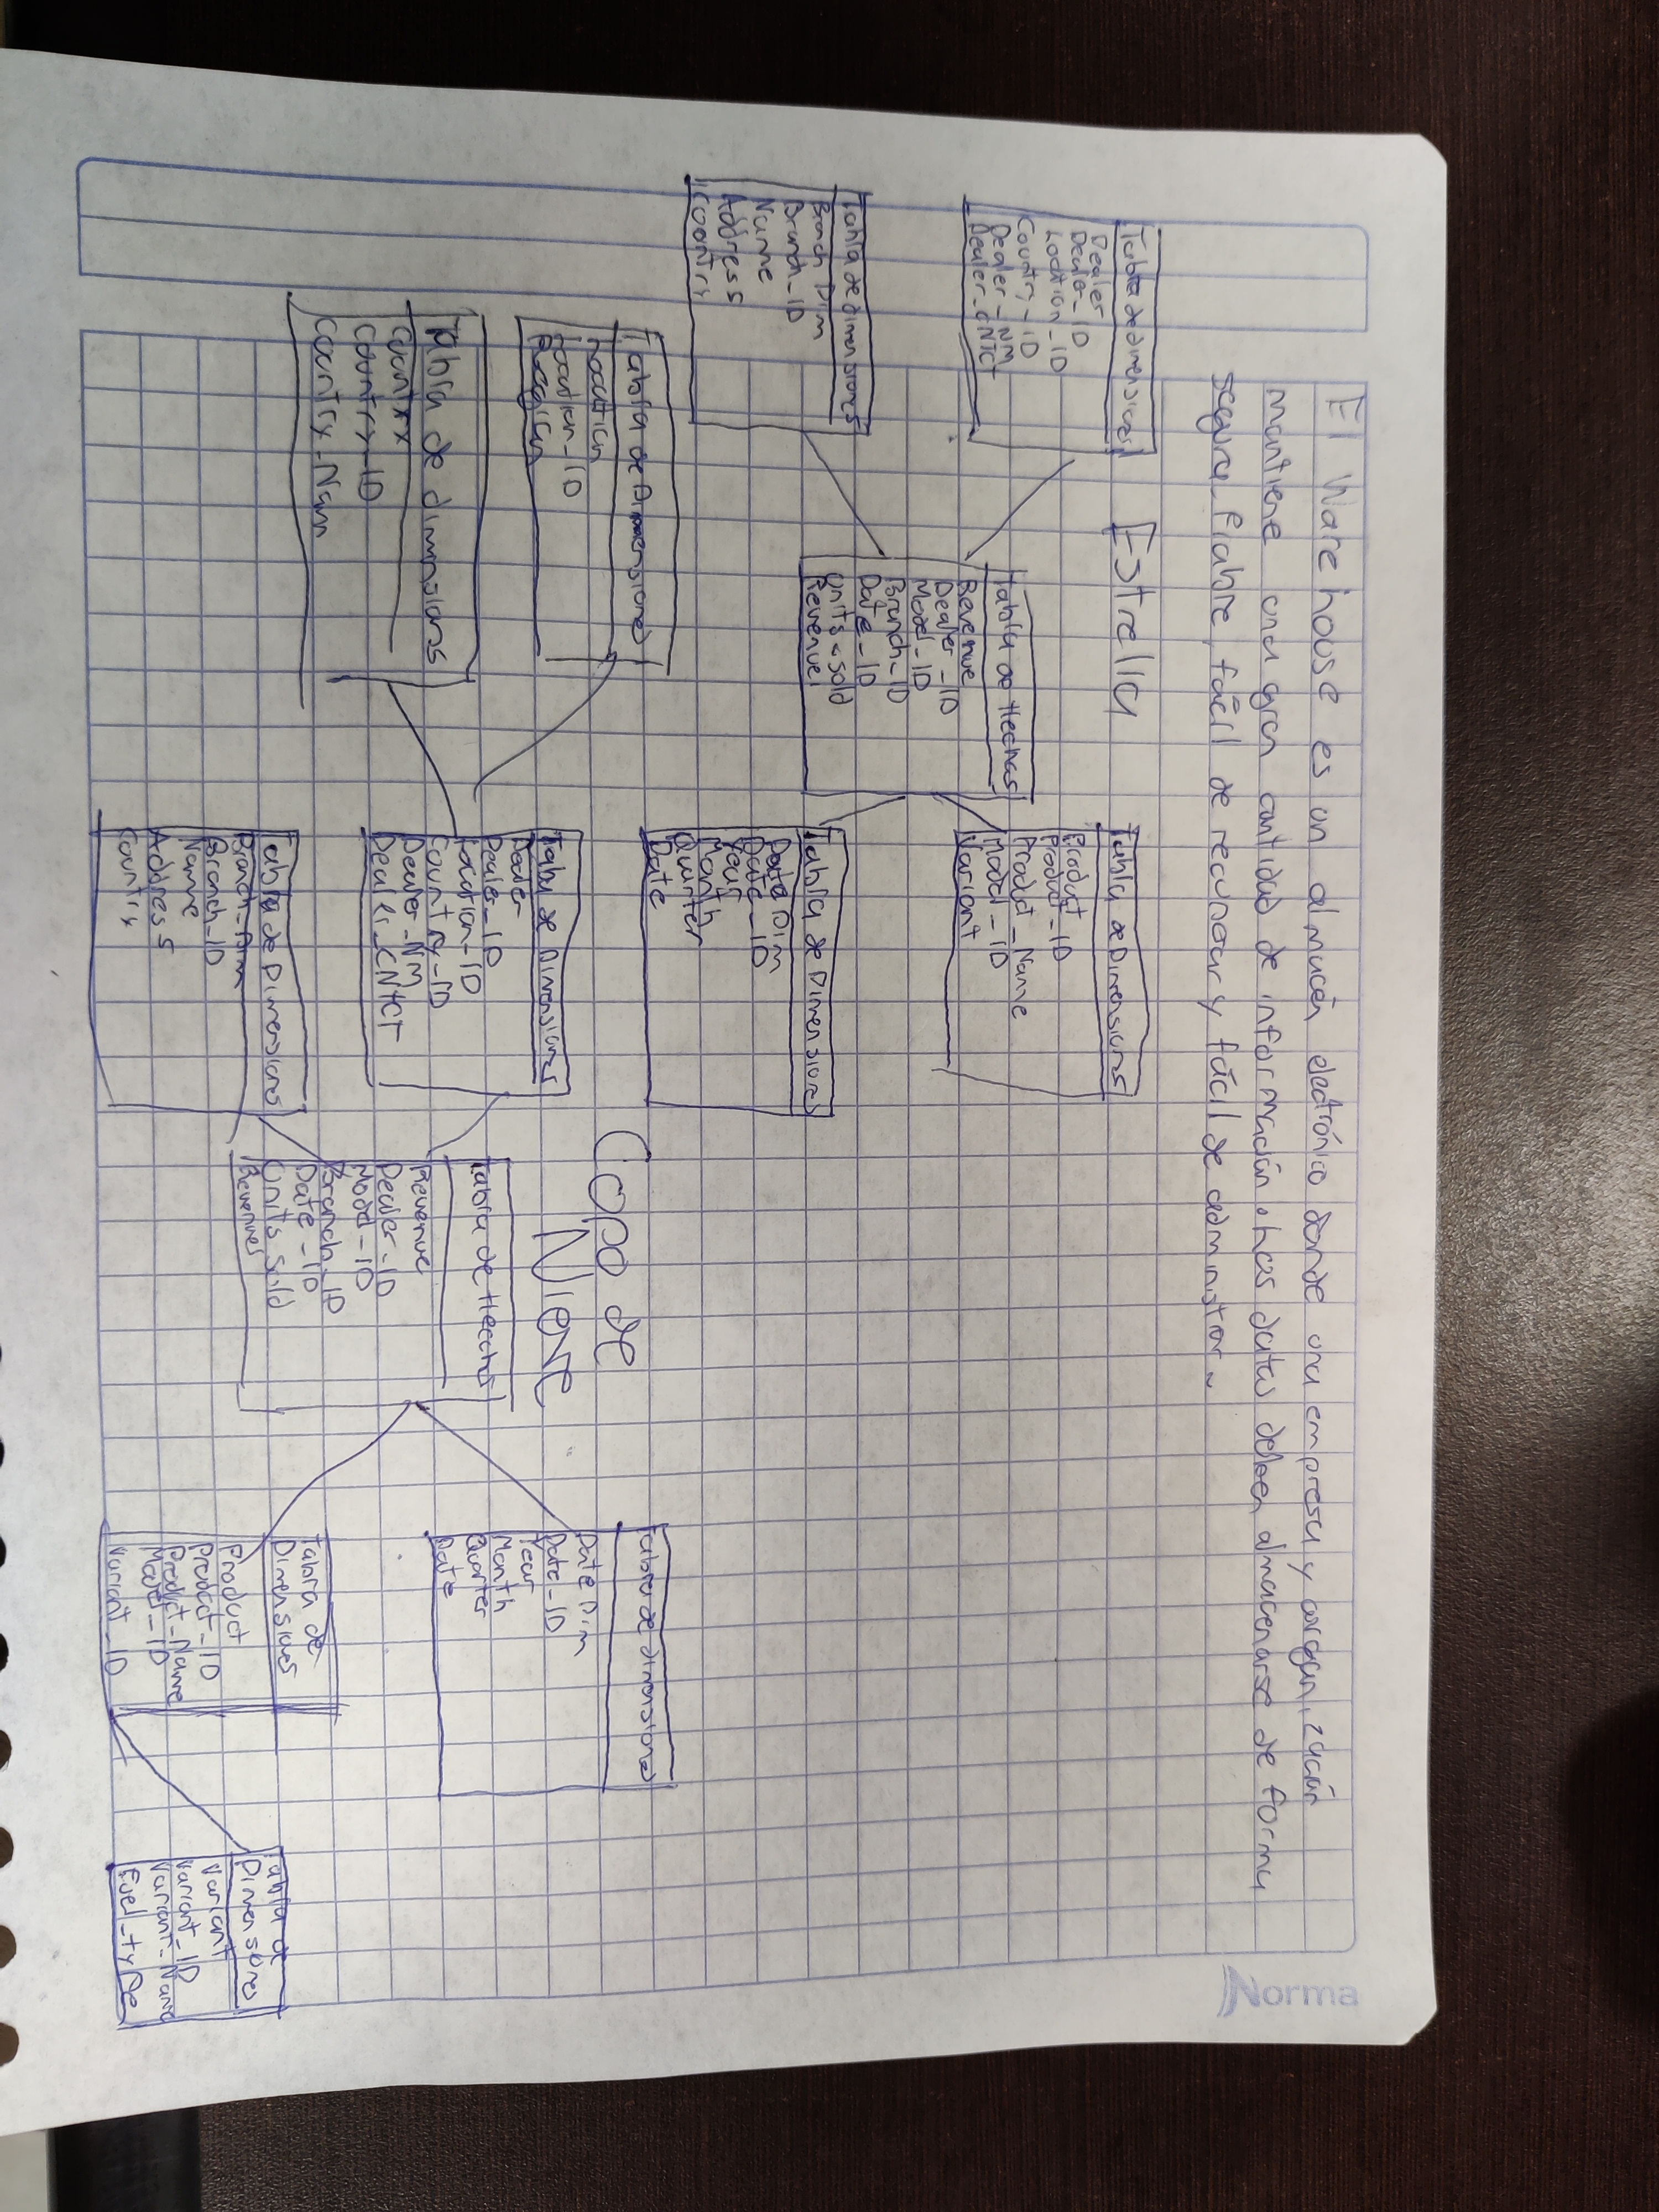 El Warehouse es un almacén electrónico donde una empresa y organización
mantiene una gran cantidad de información. Los datos deben almacenarse de forma
segura, fiable, fácil de recuperar y fácil de administrar.
Estrella
Tabla de dimensiones
Dealer
Dealer_ID
Location_ID
Country_ID
Dealer_NM
Dealer_CNTCT
Tabla de dimensiones
Branch Dim
Branch_ID
Name
Address
Country
Tabla de Hechos
Revenue
Dealer_ID
Model_ID
Branch_ID
Date_ID
Units sold
Revenue
Tabla de Dimensions
Product
Product_ID
Product_Name
Model_ID
Variant
Tabla de Dimensiones
Date Dim
Date_ID
Year
Month
Quarter
Date
Copo de
Nieve
Tabla de Dimensiones
Location
Location_ID
Region
Tabla de dimnsions
Country
Country_ID
Country_Nam
Tabla de Dimensions
Dealer
Dealer_ID
Location_ID
Country_ID
Dealer_NM
Dealer_CNTCT
Tabla de Dimensiones
Branch_Dim
Branch_ID
Name
Address
Country
Tabla de Hechos
Revenue
Dealer_ID
Model_ID
Branch_ID
Date_ID
Units Sold
Revenues
Tabla de dimensiones
Date Dim
Date_ID
Year
Month
Quarter
Date
Tabla de
Dimensiones
Product
Product_ID
Product_Name
Model_ID
Variant_ID
Tabla de
Dimensones
Variant
Variant_ID
Variant_Name
Fuel_type
Norma